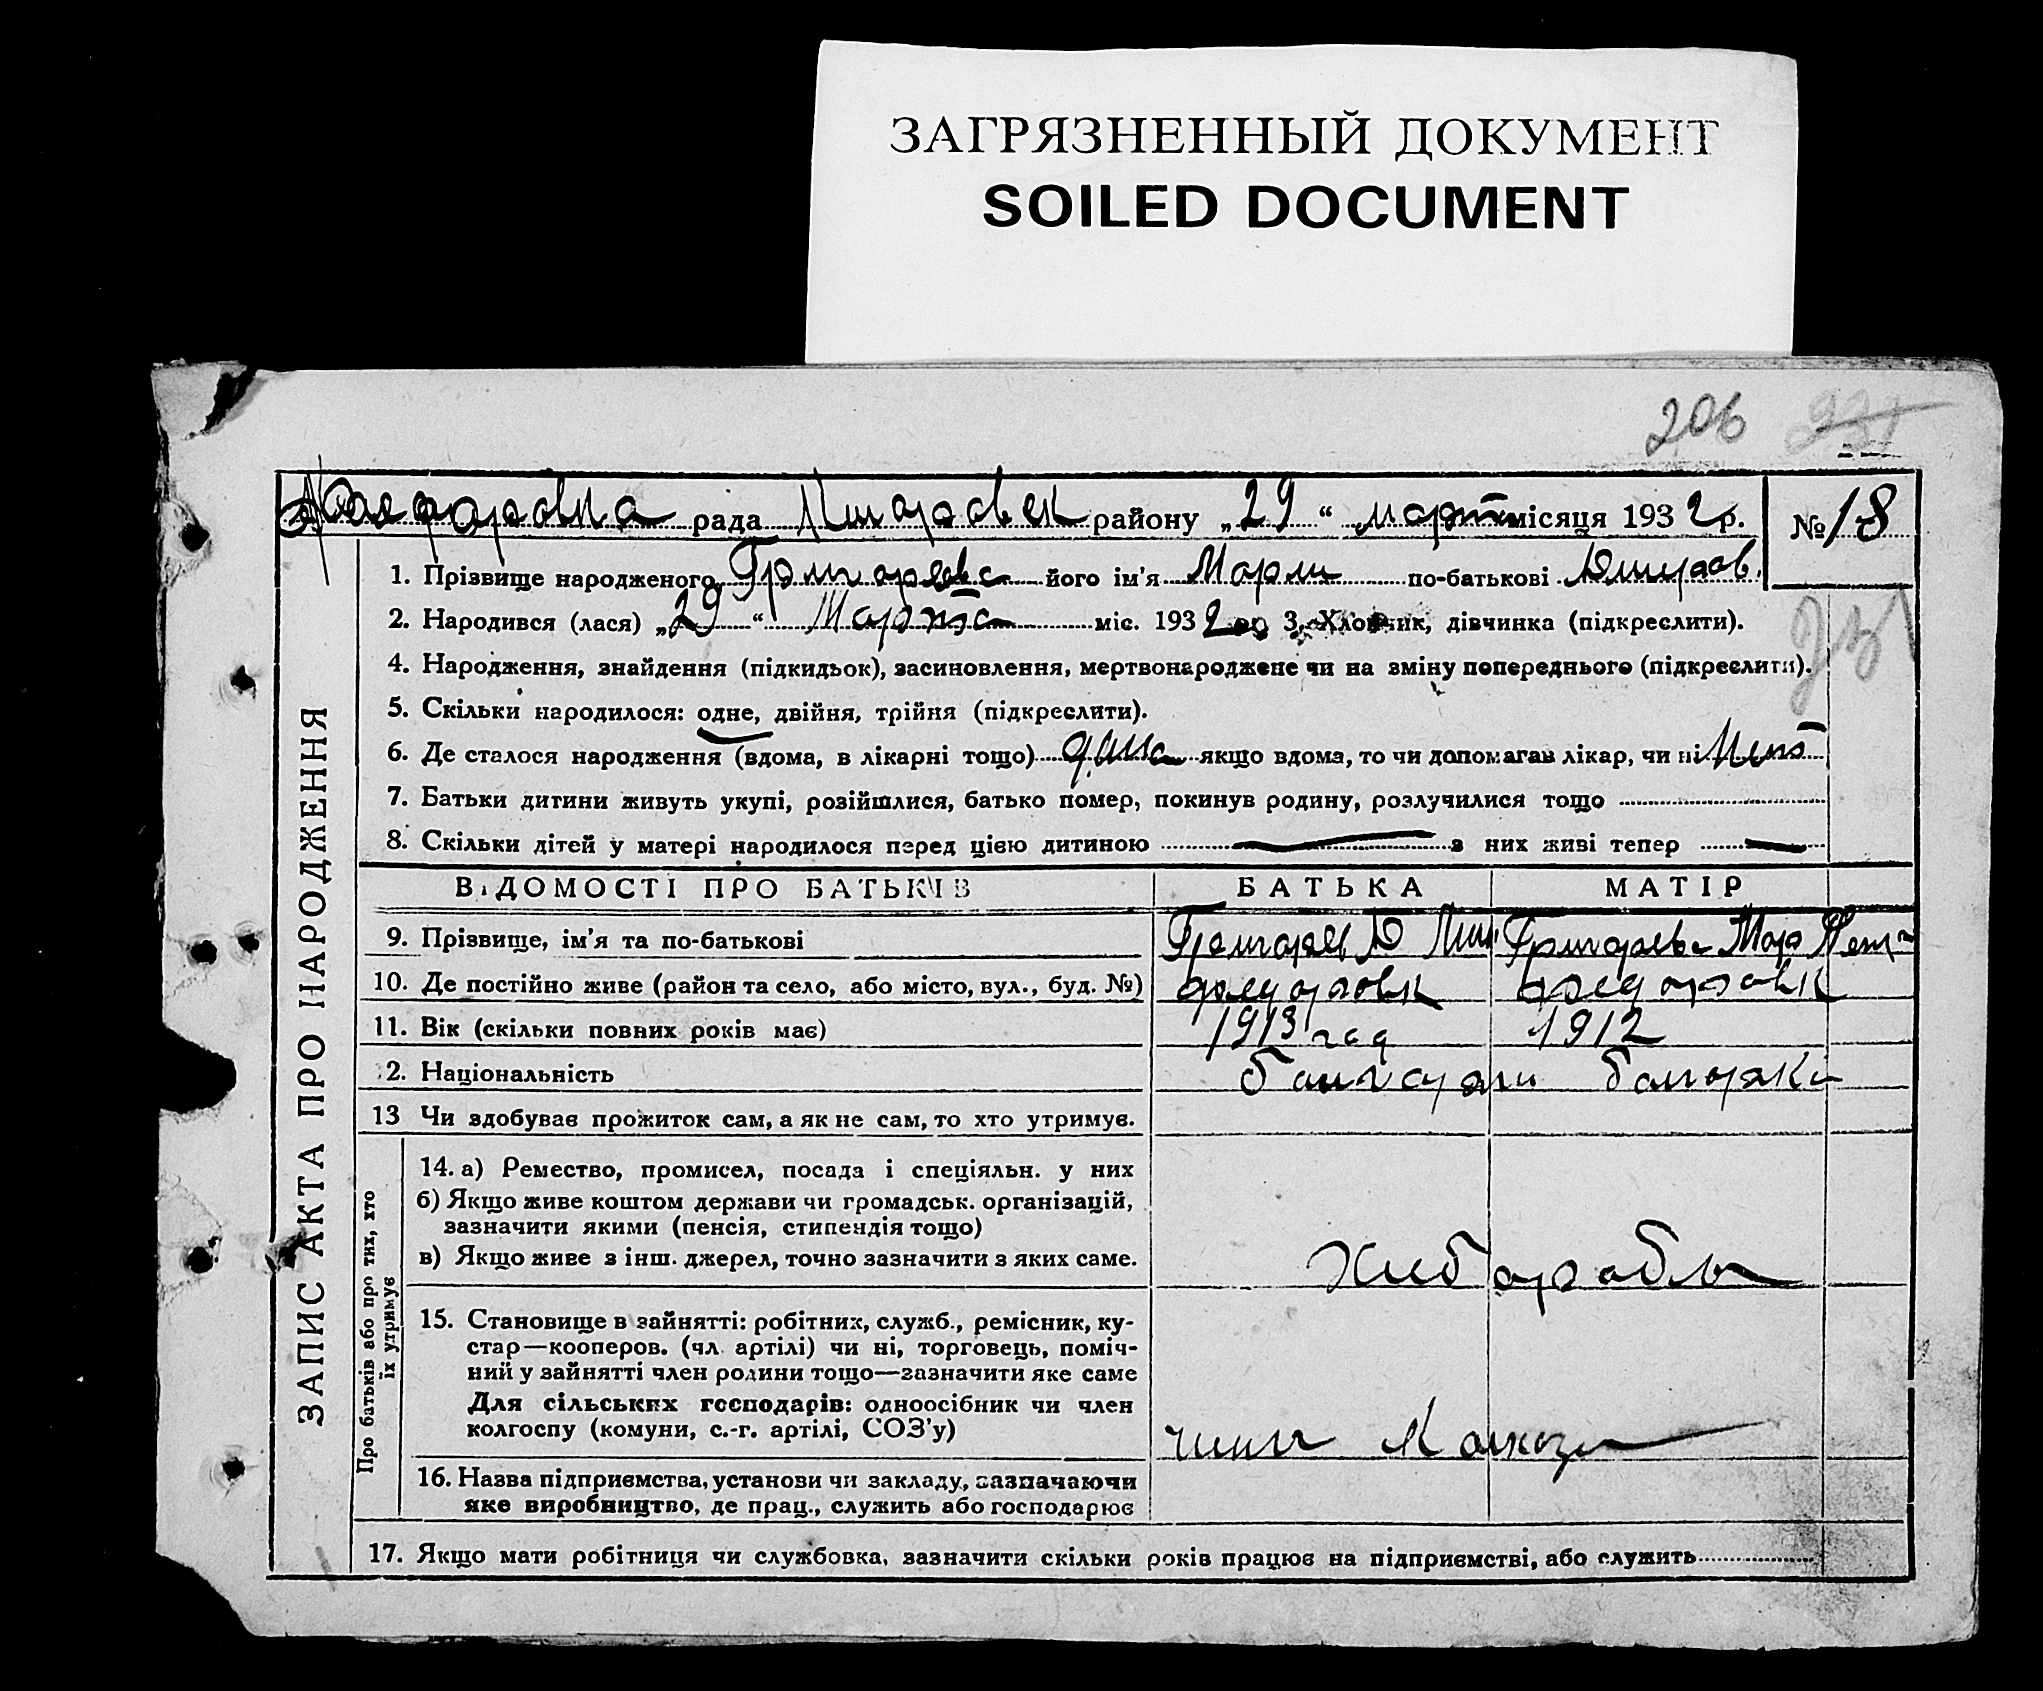 ЗАГРЯЗНЕННЫЙ ДОКУМЕНТ
SOILED DOCUMENT
206
рада району „29“ март місяця 1932 р. № 18
ЗАПИС АКТА ПРО НАРОДЖЕННЯ
1. Прізвище народженого його ім'я Мария по-батькові
2. Народився (лася) „29“ Марта міс. 1932 р. 3. Хлопчик, дівчинка (підкреслити).
4. Народження, знайдення (підкидьок), засиновлення, мертвонароджене чи на зміну попереднього (підкреслити).
5. Скільки народилося: одне, двійня, трійня (підкреслити).
6. Де сталося народження (вдома, в лікарні тощо) дома якщо вдома, то чи допомагав лікар, чи ні Нет
7. Батьки дитини живуть укупі, розійшлися, батько помер, покинув родину, розлучилися тощо
8. Скільки дітей у матері народилося перед цією дитиною — з них живі тепер —
ВІДОМОСТІ ПРО БАТЬКІВ БАТЬКА МАТІР
9. Прізвище, ім'я та по-батькові
10. Де постійно живе (район та село, або місто, вул., буд. №)
11. Вік (скільки повних років має) 1913 год 1912
12. Національність
13 Чи здобуває прожиток сам, а як не сам, то хто утримує.
Про батьків або про тих, хто їх утримує
14. а) Ремество, промисел, посада і спеціяльн. у них
б) Якщо живе коштом держави чи громадськ. організацій,
зазначити якими (пенсія, стипендія тощо)
в) Якщо живе з інш. джерел, точно зазначити з яких саме.
15. Становище в зайнятті: робітник, служб., ремісник, ку-
стар—кооперов. (чл. артілі) чи ні, торговець, поміч-
ний у зайнятті член родини тощо—зазначити яке саме
Для сільських господарів: одноосібник чи член
колгоспу (комуни, с.-г. артілі, СОЗ'у)
16. Назва підприємства, установи чи закладу, зазначаючи
яке виробництво, де прац., служить або господарює
17. Якщо мати робітниця чи службовка, зазначити скільки років працює на підприємстві, або служить